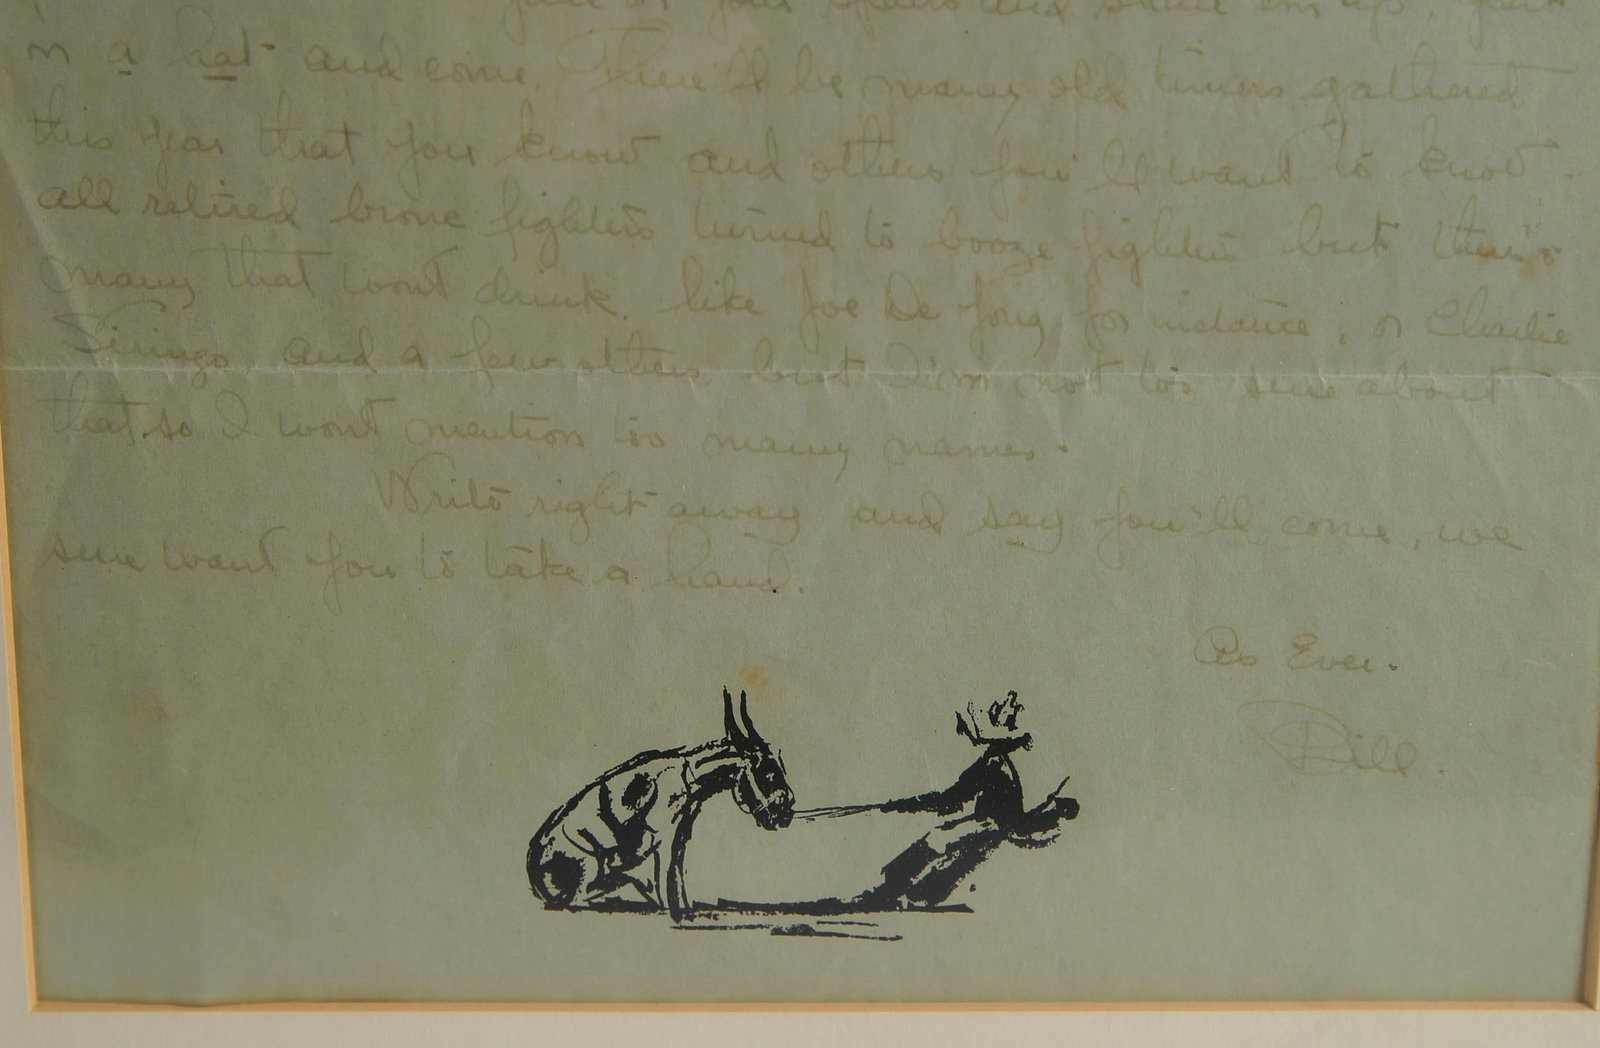 of your spurs and shine em up, put
on a hat and come. There'll be many old timers gathered
this year that you know and others you'll want to know.
all retired bronc fighters turned to booze fighters but there's
many that wont drink. like Joe De Yong for instance, or Charlie
Siringo, and a few others, but I'm not too sure about
that, so I wont mention too many names.
Write right away and say you'll come, we
sure want you to take a hand.
As Ever.
Bill.